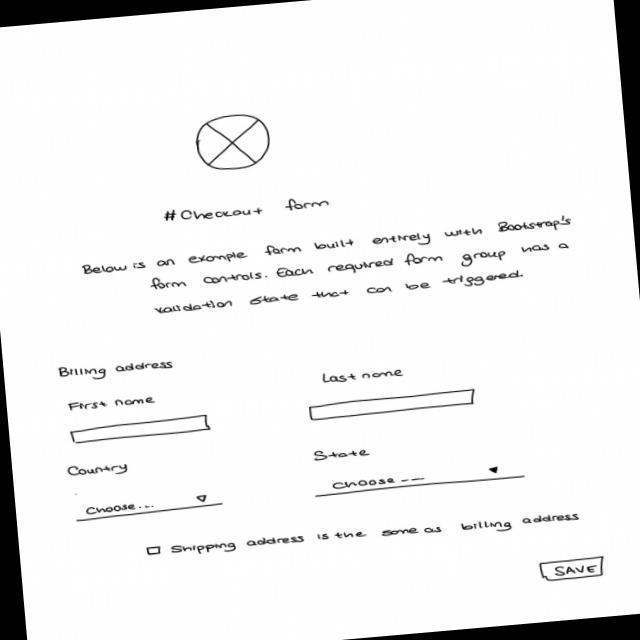 #Checkout form
Below is an example form built entirely with Bootstrap's
form controls. Each required form group has a
validation state that can be triggered.
Billing address
First name
Last name
Country
State
Choose...
Choose ---
Shipping address is the same as billing address
SAVE